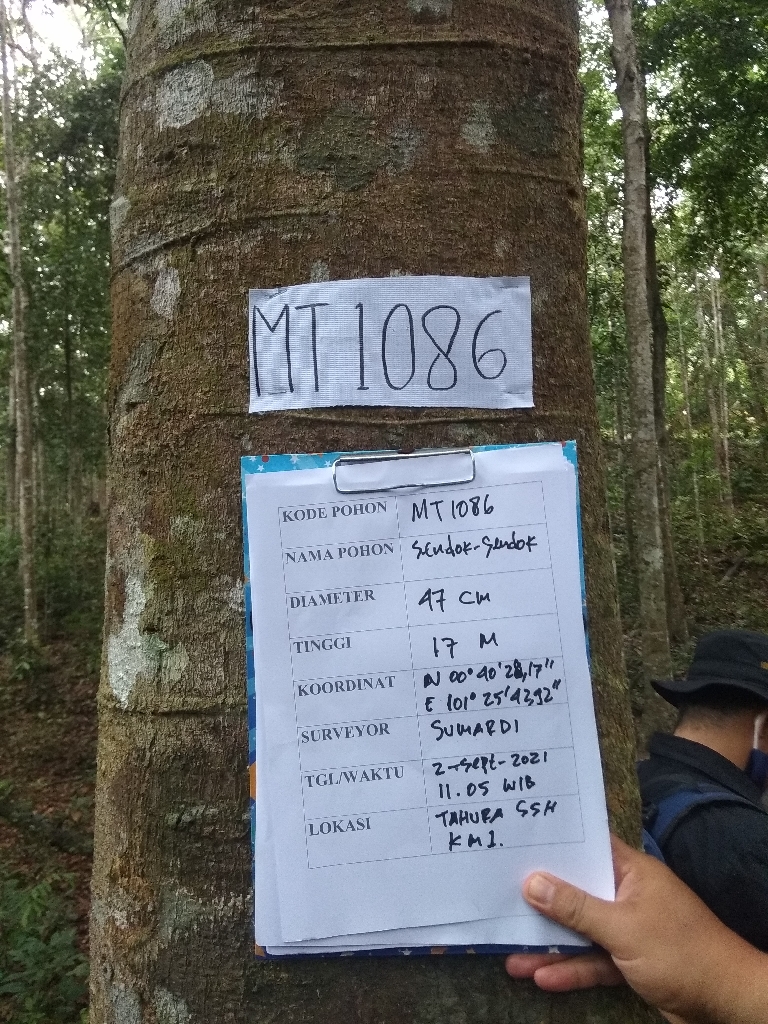 MT1086
KODE POHON MT1086
NAMA POHON Sendok-Sendok
DIAMETER 47 CM
TINGGI 17 M
KOORDINAT N 00° 40' 28,17"
E 101° 25' 43,92"
SURVEYOR SUMARDI
TGL/WAKTU 2-Sept-2021
11.05 WIB
LOKASI TAHURA SSH
KM1.